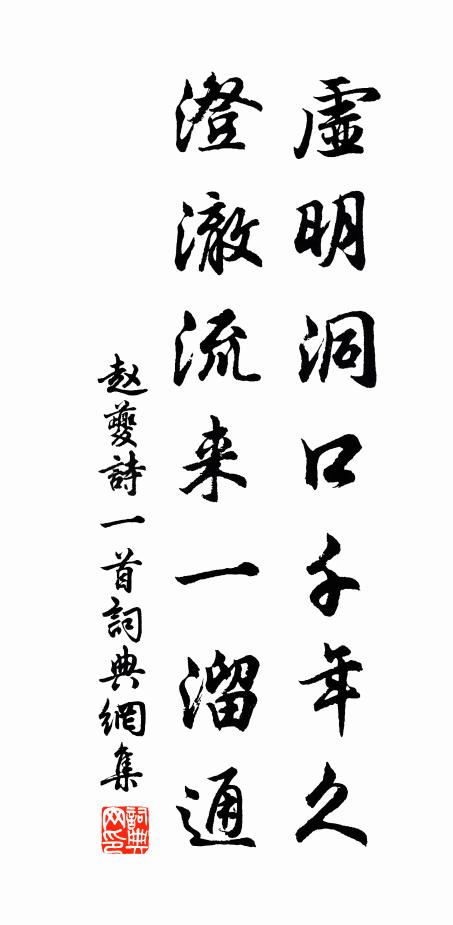 虛明洞口千年久
澄澈流来一溜通
赵夔詩一首詞典網集
詞典网印